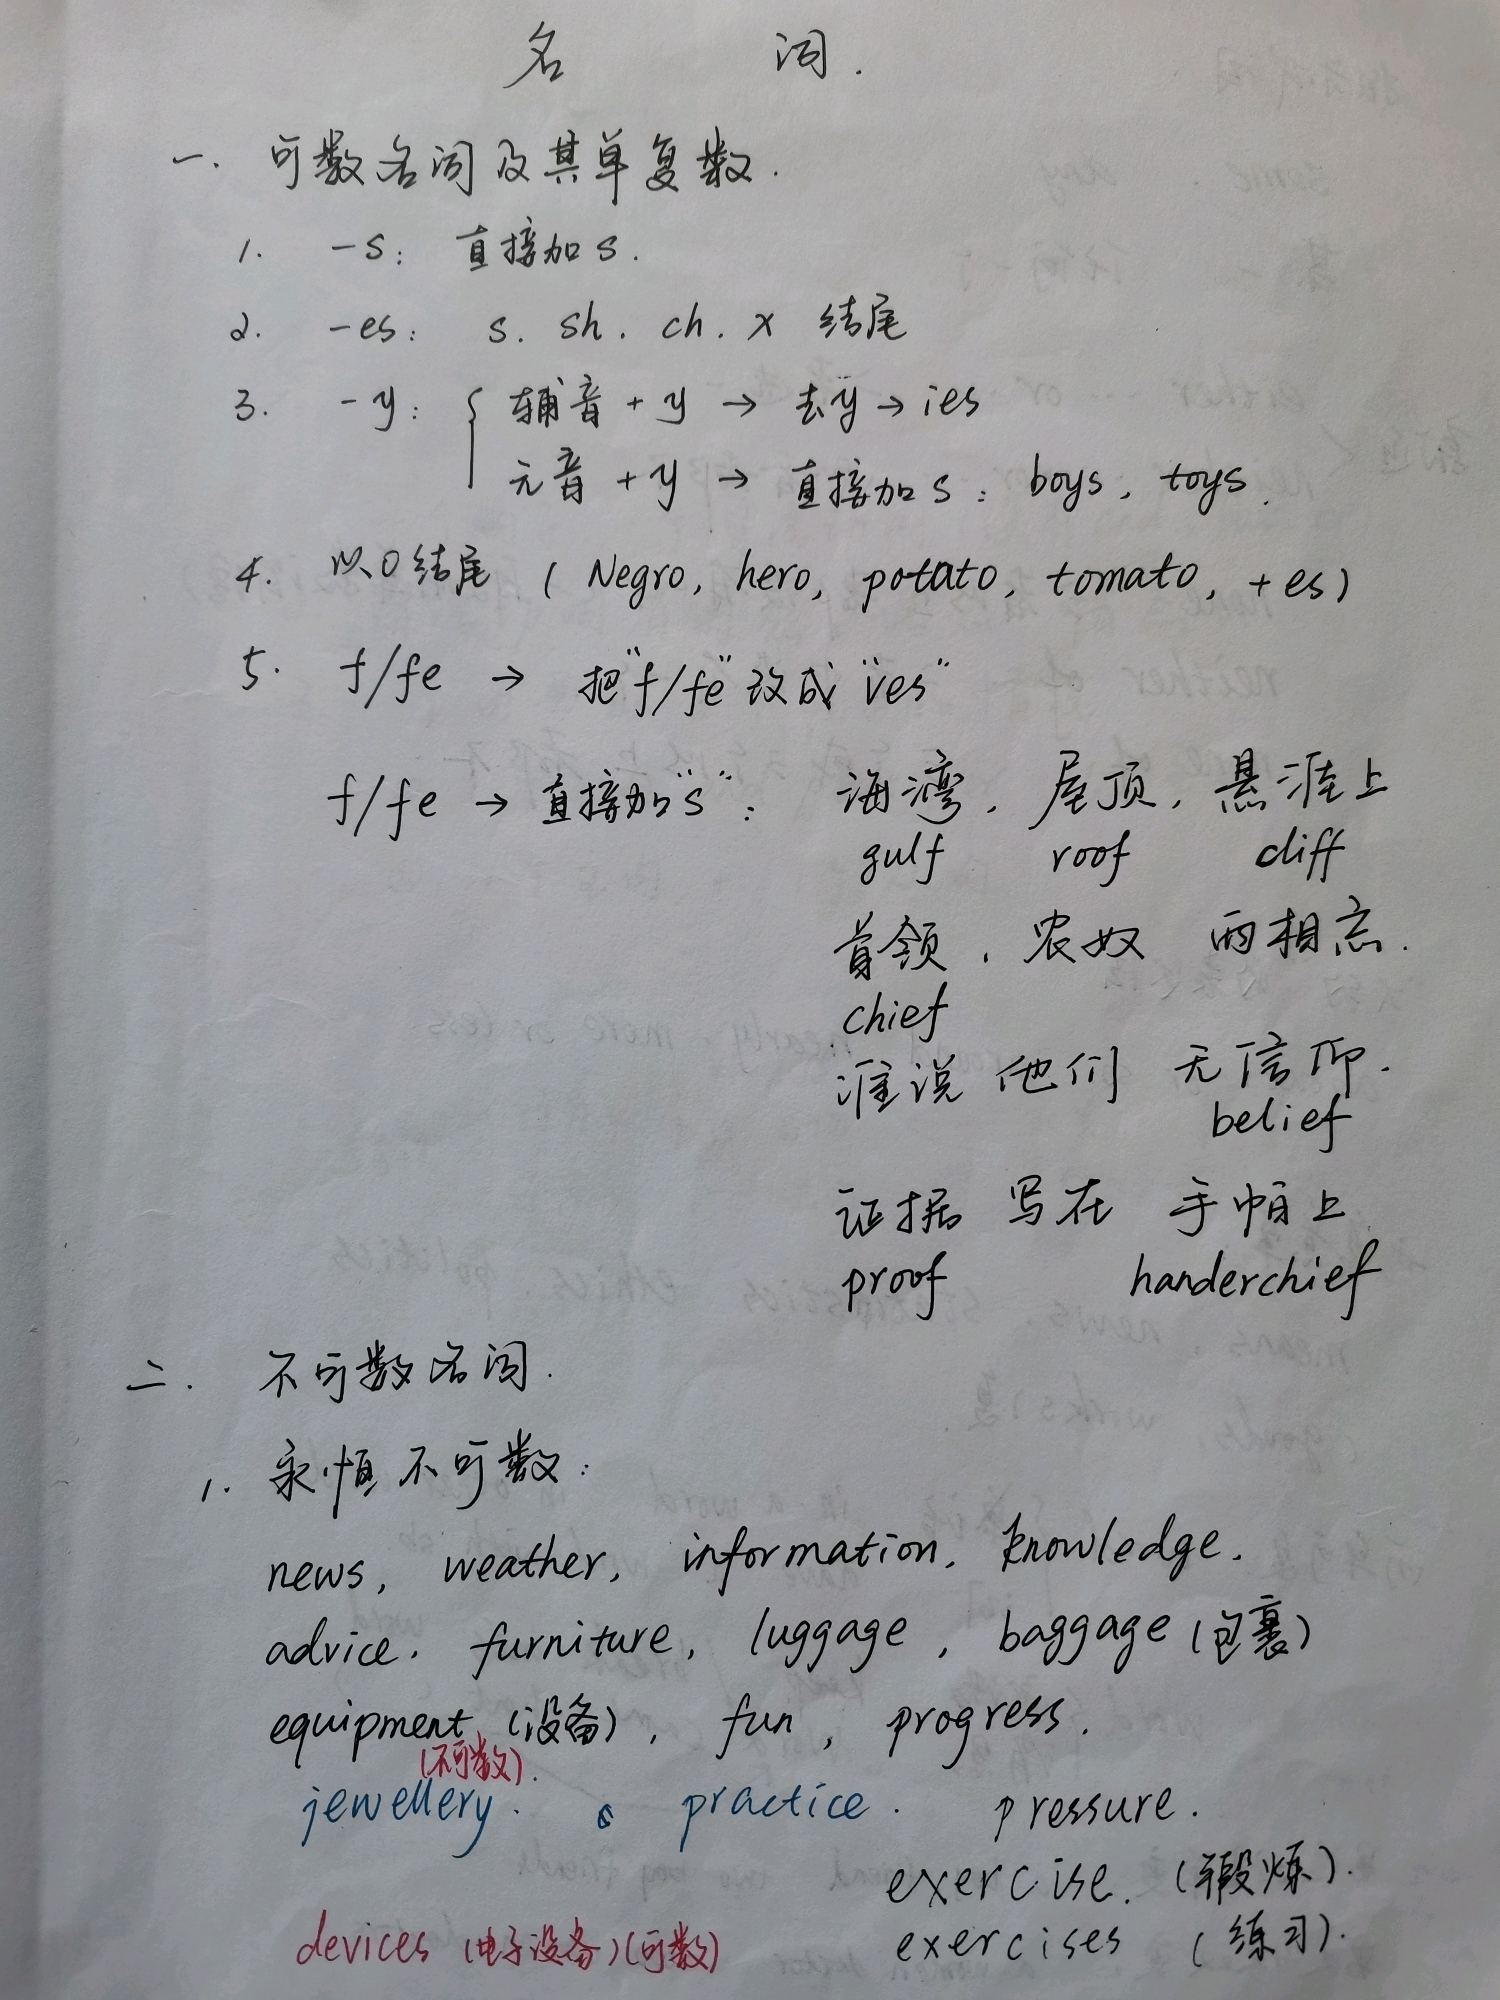 名 词.
一. 可数名词及其单复数.
1. -s: 直接加s.
2. -es: s. sh. ch. x 结尾
3. -y: { 辅音+y → 去y → ies
元音+y → 直接加s: boys, toys.
4. 以o结尾 (Negro, hero, potato, tomato, +es)
5. f/fe → 把"f/fe"改成"ves"
f/fe → 直接加"s": 海湾, 屋顶, 悬涯上
gulf roof cliff
首领, 农奴 两相忘.
chief
谁说 他们 无信仰.
belief
证据 写在 手帕上
proof handerchief
二. 不可数名词.
1. 永恒不可数:
news, weather, information, knowledge.
advice. furniture, luggage, baggage (包裹)
equipment (设备), fun, progress.
(不可数).
jewellery. practice. pressure.
exercise. (锻炼).
devices (电子设备)(可数) exercises (练习).